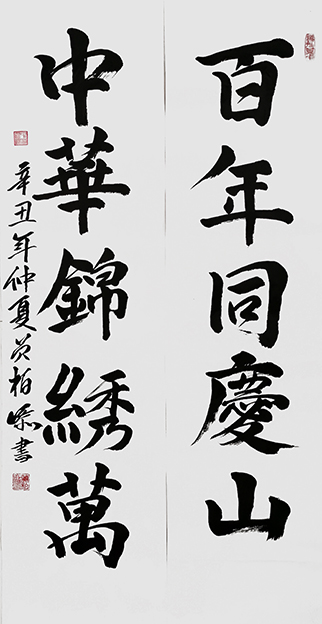 百年同慶山
中華錦綉萬
辛丑年仲夏柏書